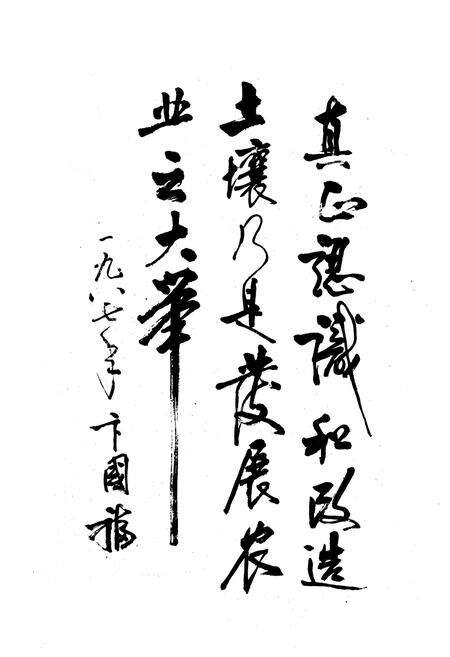 真正認識和改造
土壤乃是發展农
业之大举
一九八七年 卞國福